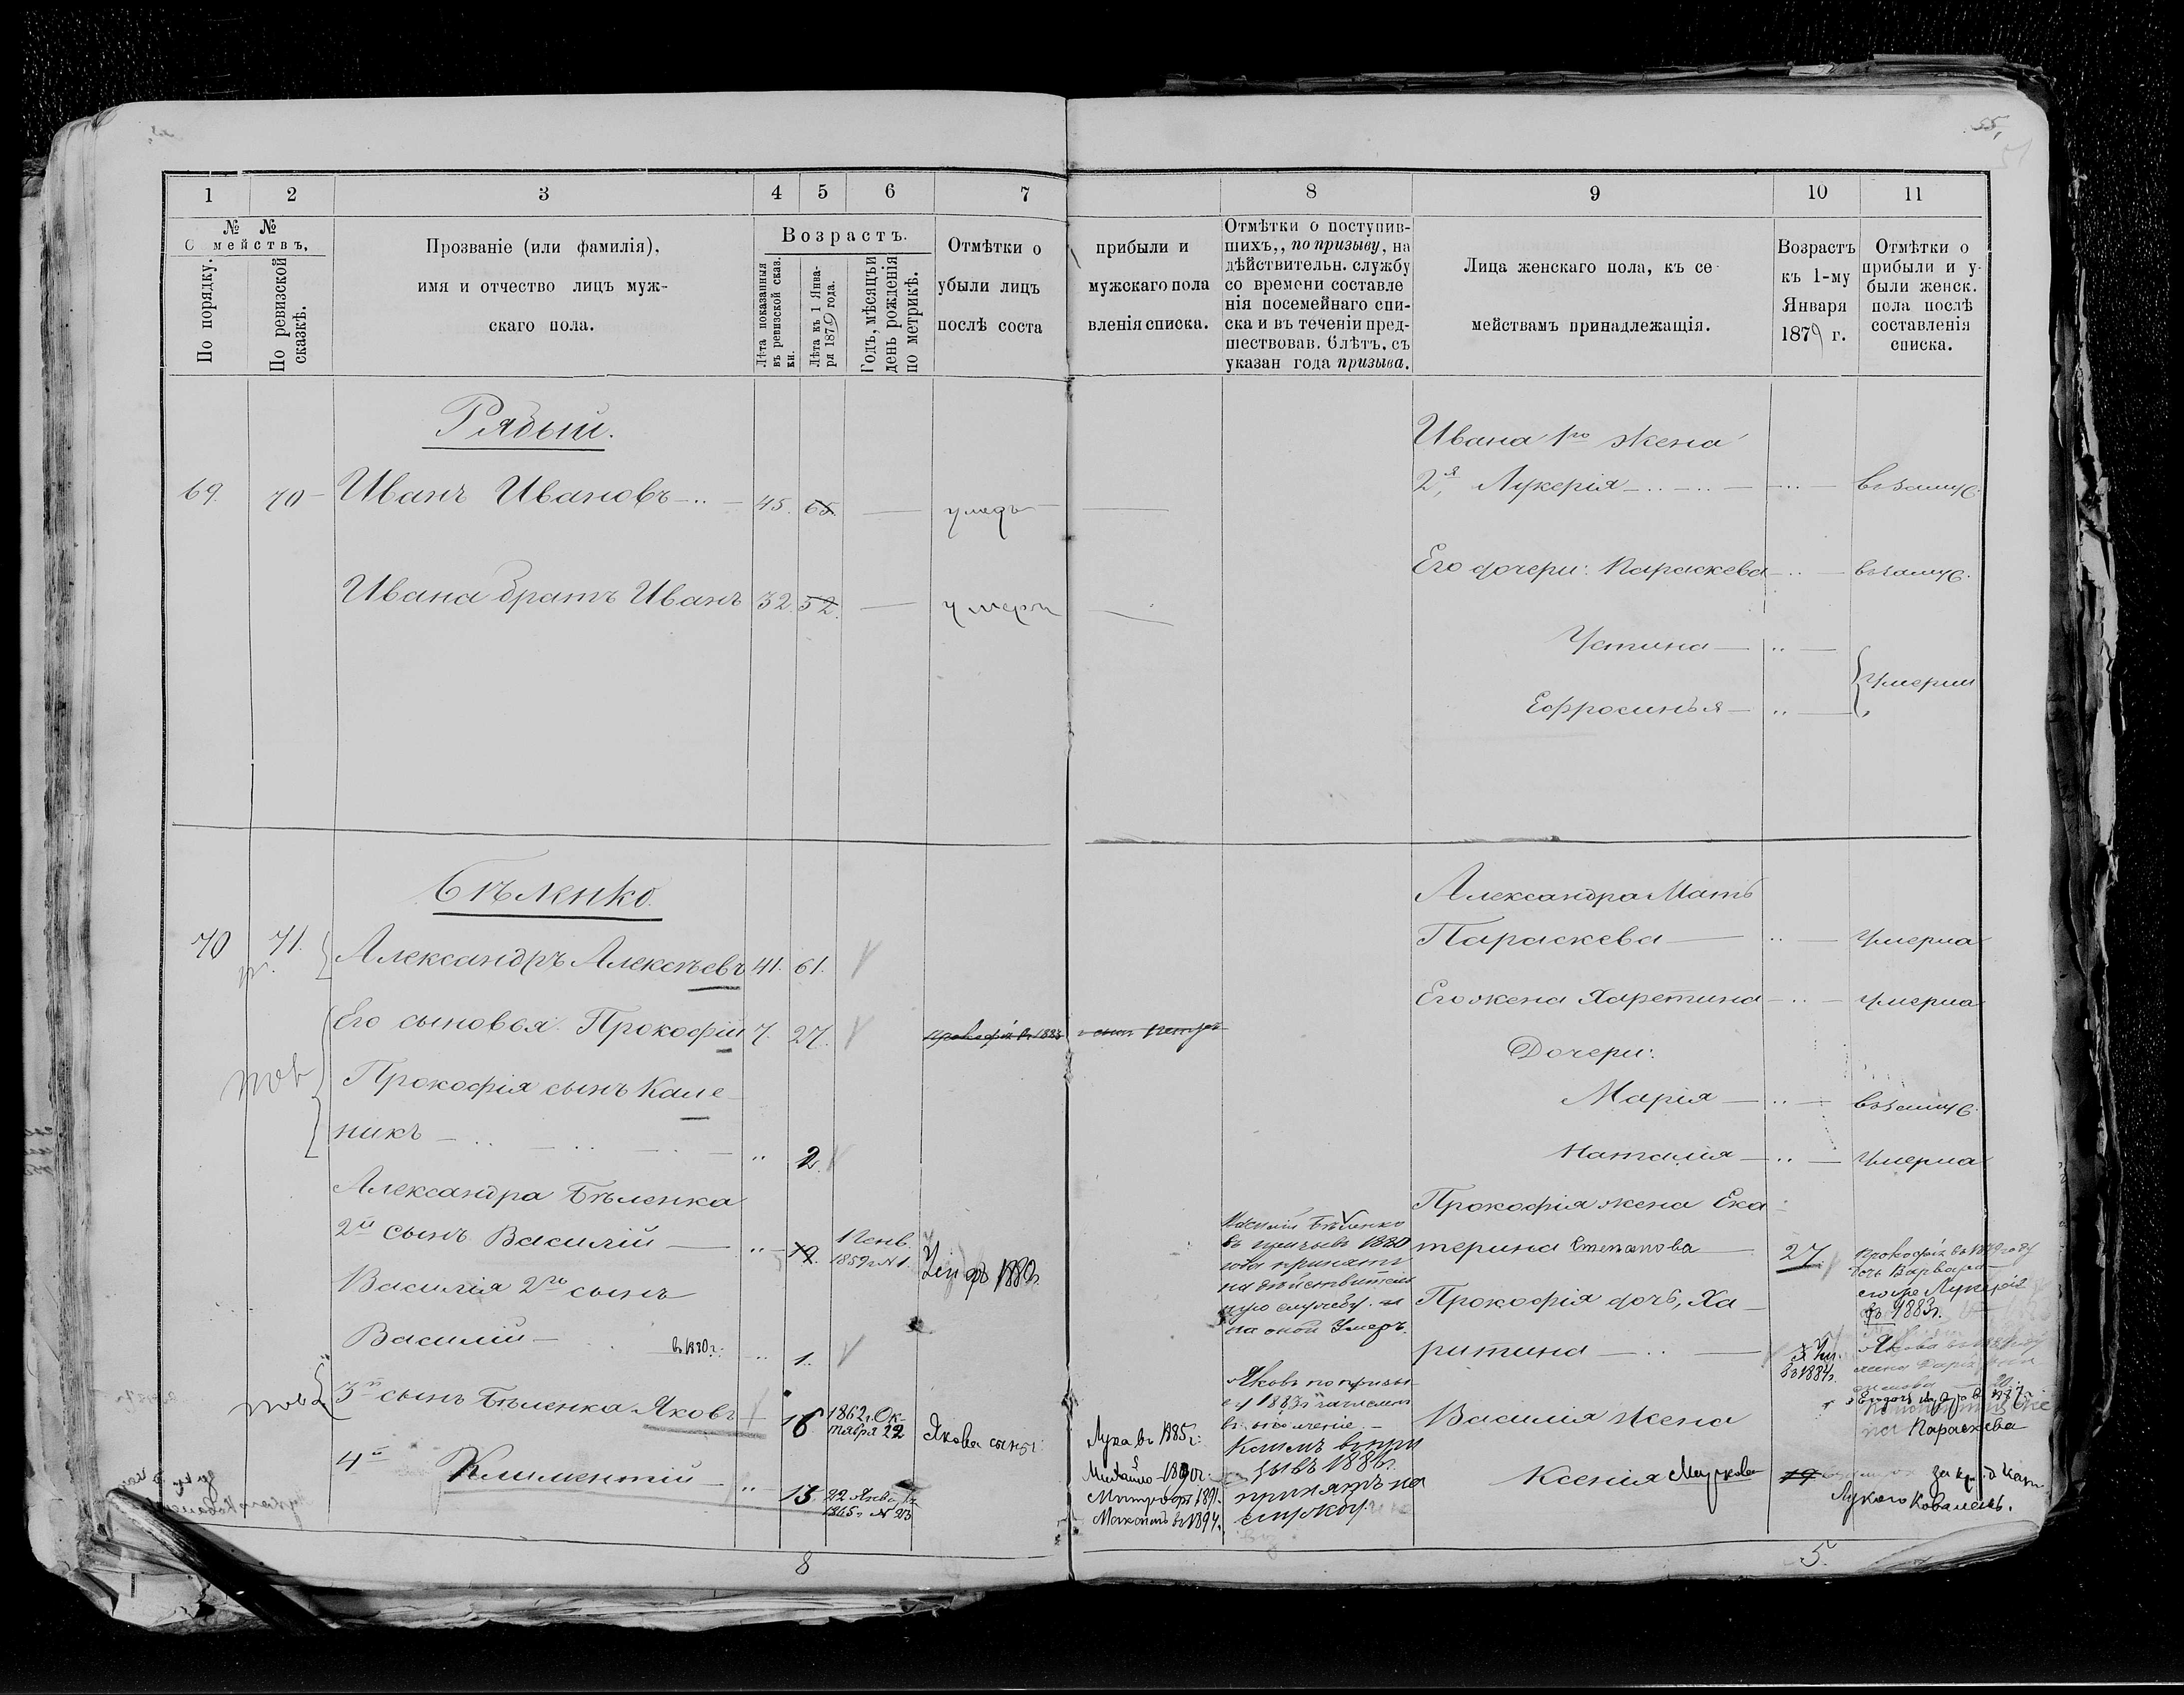 55,
1 2 3 4 5 6 7 8 9 10 11
№ №
Семействъ,
По порядку.
По ревизской сказкѣ.
Прозваніе (или фамилія),
имя и отчество лицъ муж-
скаго пола.
Возрастъ.
Лѣта показанныя въ ревизской сказ.ки.
Лѣта къ 1 Января 1879 года.
Годъ, мѣсяцъ и день рожденія по метрикѣ.
Отмѣтки о прибыли и
убыли лицъ мужскаго пола
послѣ составленія списка.
Отмѣтки о поступив-
шихъ,, по призыву, на
дѣйствительн. службу
со времени составле
нія посемейнаго спи-
ска и въ теченіи пред-
шествовав. 6лѣтъ, съ
указан года призыва.
Лица женскаго пола, къ се-
мействамъ принадлежащія.
Возрастъ
къ 1-му
Января
1879 г.
Отмѣтки о
прибыли и у-
были женск.
пола послѣ
составленія
списка.
Рябый.
69. 70 Иванъ Ивановъ 45. 65. умеръ
Ивана братъ Иванъ 32. 52. умеръ
Ивана 1го жена
2я, Лукерія
Его дочери: Параскева
Устина
Ефросинья
Умерли
Бѣленко.
70 71. Александръ Алексѣевъ 41. 61.
Его сыновья: Прокофій 7. 27. Прокофія в. 1883
Прокофія сынъ Кале
никъ 2.
Александра Бѣленка
2й сынъ Василій 19. 1 Генв. 1859 г № 1. Умеръ 1880 г.
Василія 2го сынъ
Василій в 1880 г. 1.
3й сынъ Бѣленка Яковъ 16 1862 г. Октября 22 Якова сыны:
4й Климентій 13. 22 Янва 1865 г № 23
Лука въ 1885 г:
Михайло-1890 г.
Митрофан 1891.
Максимъ в 1894.
8
Василій Бѣленко
въ призывъ 1880
года принятъ
на дѣйствитель
ную службу. и
на оной Умеръ.
Яковъ по призы
ву 1883 г зачисленъ
въ ополченіе.
Клим. въ при
зывъ 1886 г.
принятъ на
службу.
Александра Мать
Параскева Умерла
Его жена Харетина умерла
Дочери:
Марія
Наталія Умерла
Прокофія жена Ека
терина Степанова 27
Прокофія дочь, Ха
ритина 3 Ум. в 1884 г.
Василія жена
Ксенія Маркова 19
Прокофія въ 1879 году
дочь Варвара
Лукерія
въ 1883 г.
Якова
Дарія
Параскева
Ковалемъ.
5.